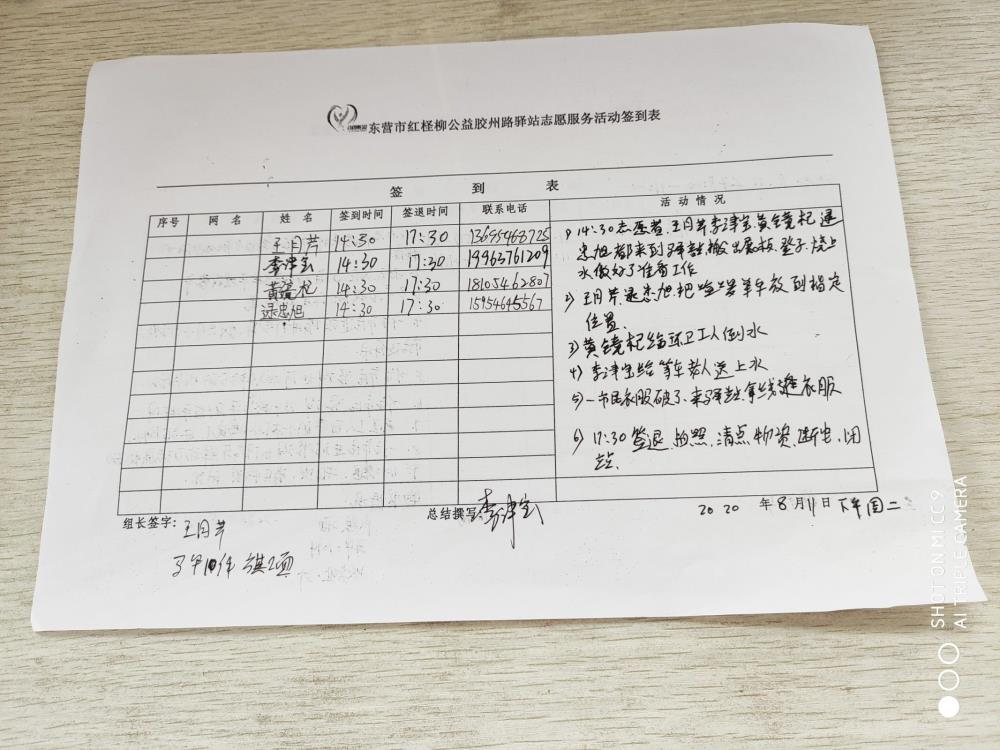 东营市红柽柳公益胶州路驿站志愿服务活动签到表
签 到 表
序号 网 名 姓 名 签到时间 签退时间 联系电话 活动情况
王月芹 14:30 17:30 13695468725
李津宝 14:30 17:30 19963761209
黄镜杞 14:30 17:30 18105462807
逯忠旭 14:30 17:30 15954645567
1) 14:30志愿者,王月芹李津宝黄镜杞逯
忠旭都来到驿站搬出展板、凳子、烧上
水做好了准备工作
2) 王月芹逯忠旭把 单车放到指定
位置.
3) 黄镜杞给环卫工人倒水
4) 李津宝给等车老人送上水
5) 一市民衣服破了.来驿站拿线缝衣服
6) 17:30签退.拍照.清点物资.断电.闭
站.
组长签字: 王月芹
总结撰写: 李津宝
2020 年 8 月 11 日 下午 周二
马甲10件 旗2面
SHOT ON MI CC9
AI TRIPLE CAMERA